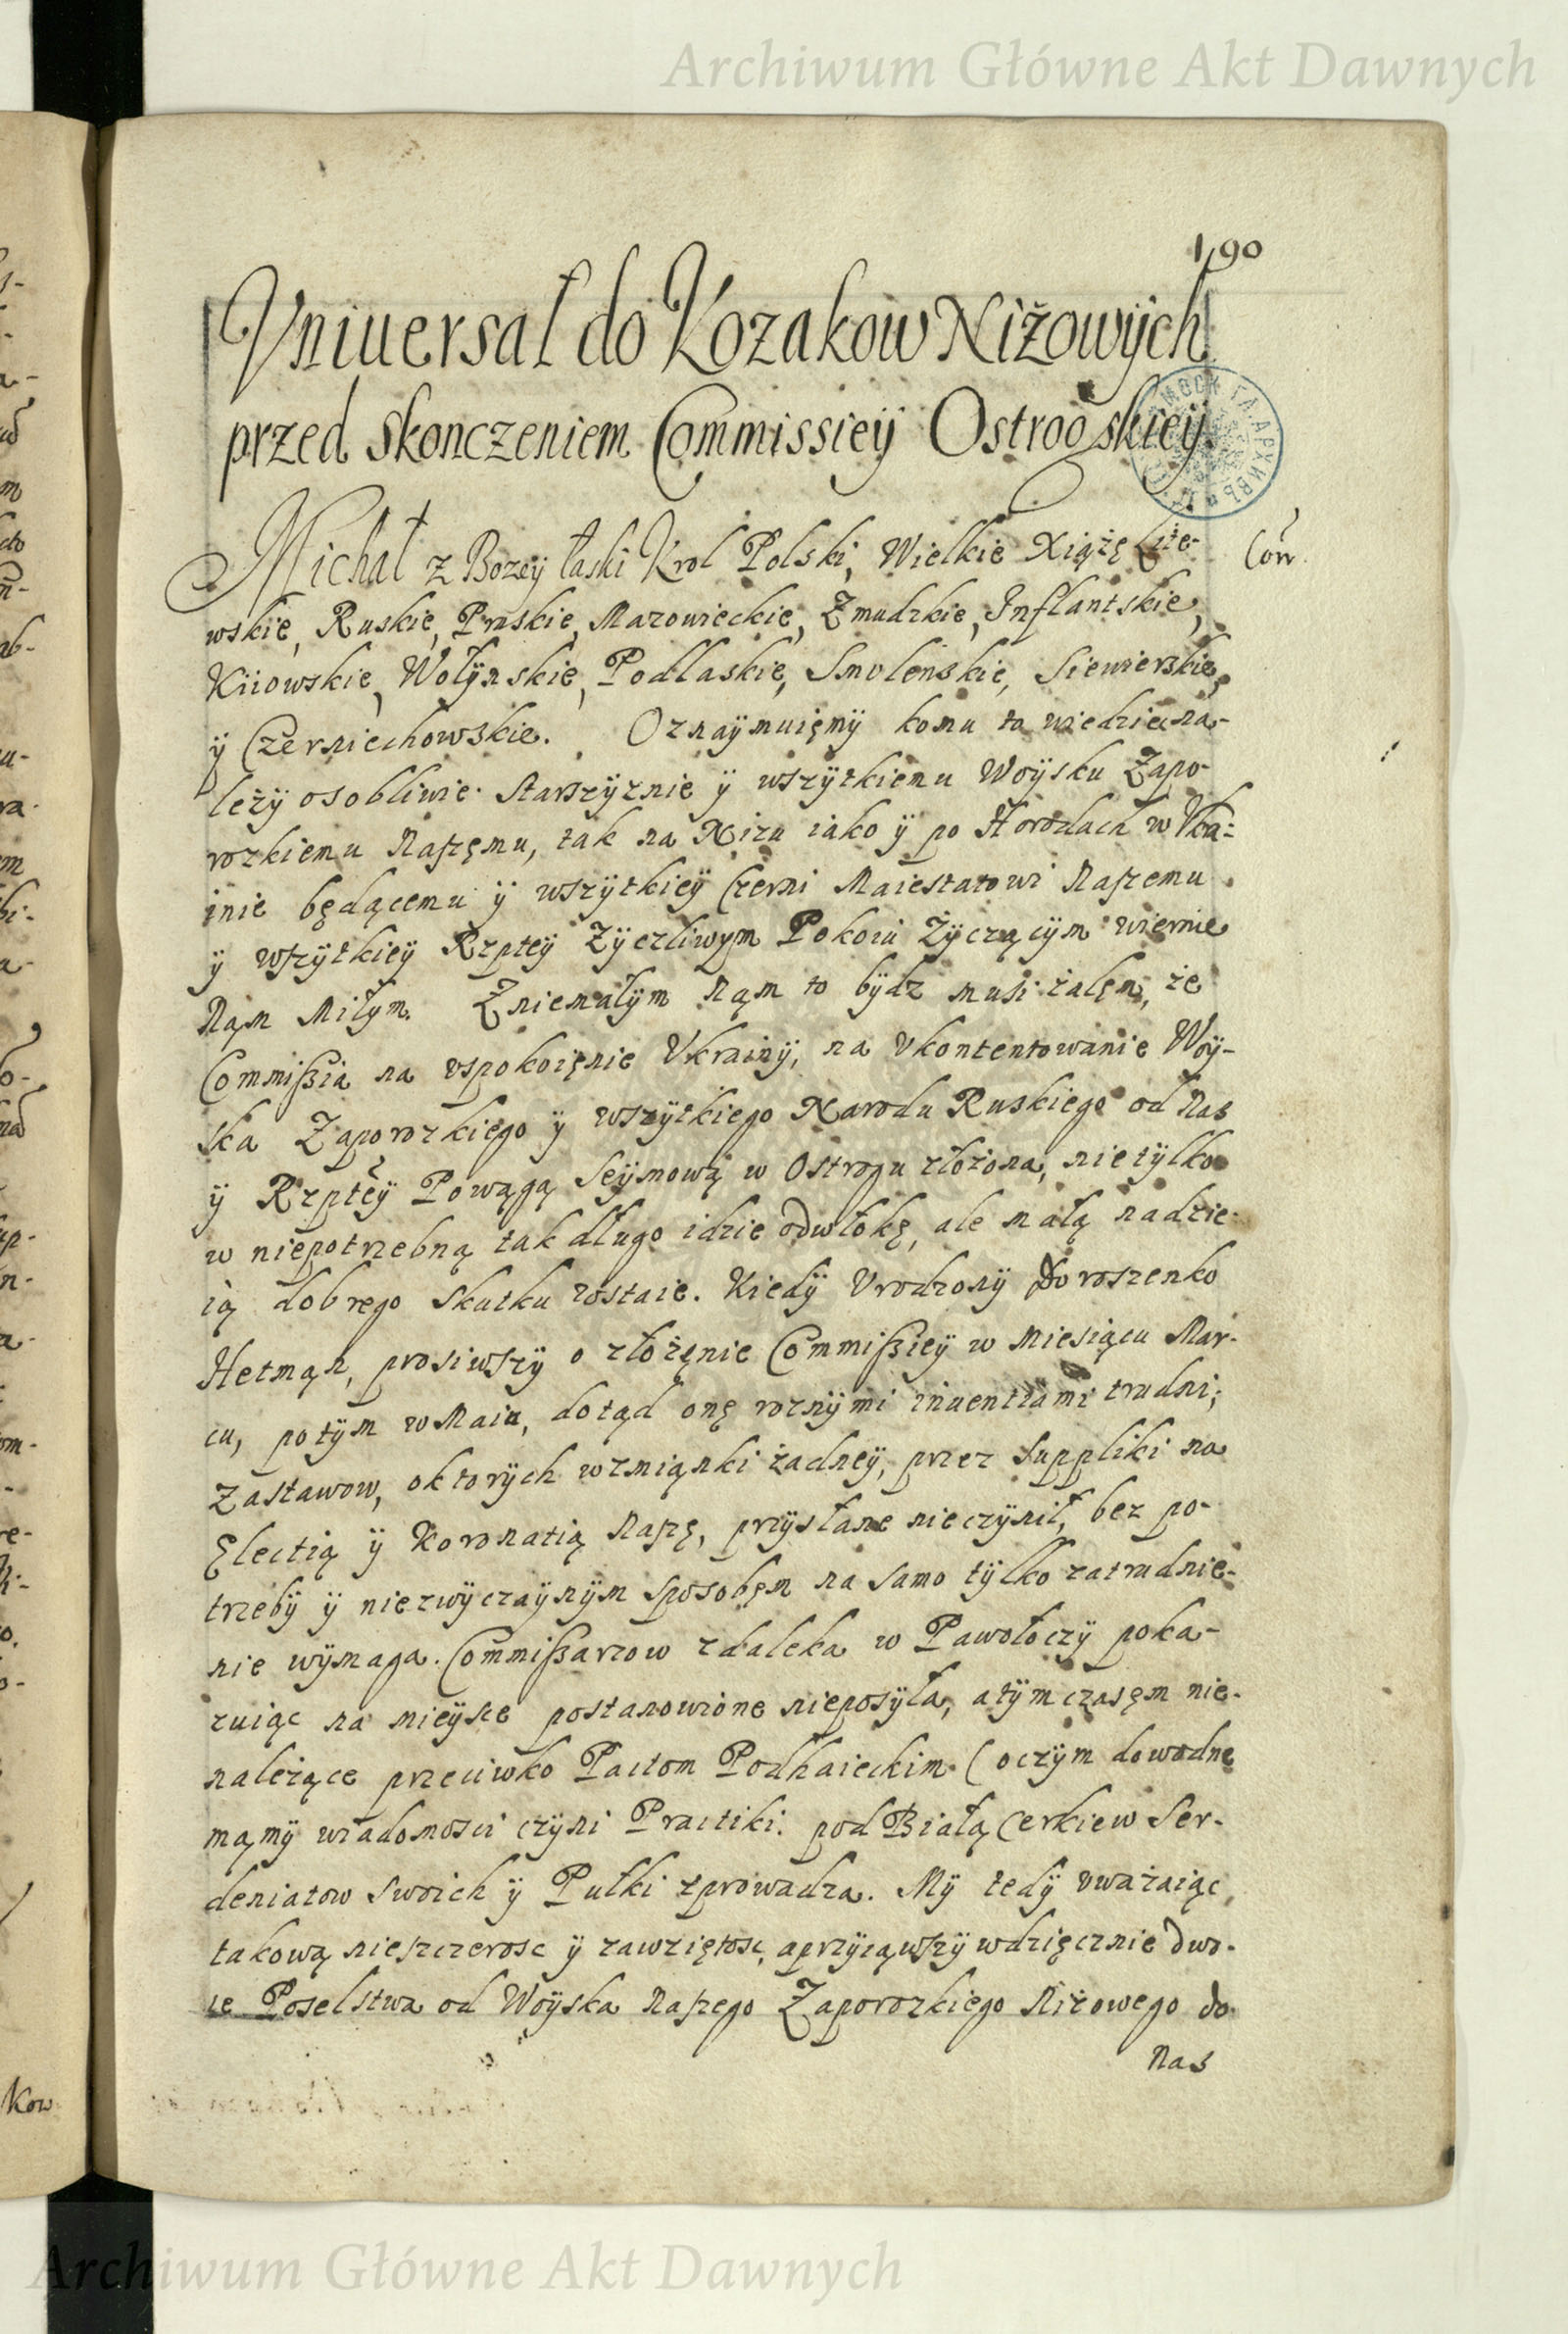 Archiwum Główne Akt Dawnych
190
Vniuersał do Kozakow Niżowÿch
przed skonczeniem Commissieÿ Ostrogskieÿ.
Michał z Bozeÿ łaski Krol Polski, Wielkie Xiążę Lite-
wskie, Ruskie, Pruskie, Mazowieckie, Zmudzkie, Inflantskie,
Kiiowskie, Wołÿnskie, Podlaskie, Smolenskie, Siewierskie,
ÿ Czerniechowskie. Oznaÿmuięmÿ komu to wiedziec na-
leżÿ osobliwie Starszÿznie ÿ wszÿtkiemu Woÿsku Zapo-
rozkiemu Naszęmu, tak na Nizu iako ÿ po Horodach w Vkra-
inie będącemu ÿ wszÿtkieÿ Czerni Maiestatowi Naszemu
ÿ wszÿtkieÿ Rzpteÿ Zÿczliwym Pokoiu Zÿczącÿm wiernie
Nąm Miłÿm. Zniemałÿm Nąm to bÿdz musi żalęm, że
Commissia na vspokoięnie Vkrainÿ, na Vkontentowanie Woÿ-
ska Zaporozkiego ÿ wszÿtkiego Narodu Ruskiego od Nas
ÿ Rzpteÿ Powągą Seÿmową w Ostrogu złożona, nietÿlko
w niepotrzebną tak długo idzie odwłokę, ale małą nadzie-
ią dobrego skutku zostaie. Kiedÿ Vrodzonÿ Doroszenko
Hetmąn, prosiwszÿ o złożęnie Commissieÿ w Miesiącu Mar-
cu, potÿm w Maiu, dotąd onę roznÿmi inuentiami trudni;
Zastawow, oktorÿch wzmiąnki żadneÿ, przez Suppliki na
Electią ÿ Koronatią Naszę, przÿsłane nieczÿnił, bez po-
trzebÿ ÿ niezwÿczaÿnÿm sposobęm na samo tÿlko zatrudnie-
nie wÿmaga. Commissarzow zdaleka w Pawołoczÿ poka-
zuiąc na mieÿsce postanowione nieposÿła, atÿm czasęm nie-
należące przeciwko Pactom Podhaieckim (oczÿm dowodne
mąmÿ wiadomosci czÿni Practiki. pod Białą Cerkiew Ser-
deniatow swoich ÿ Pułki zprowadza. Mÿ tedÿ vważaiąc
takową nieszczerosc ÿ zawziętosc, aprzÿiąwszÿ wdzięcznie dwo-
ie Poselstwa od Woÿska Naszego Zaporozkiego Niżowego do
Nas
Kow
Archiwum Główne Akt Dawnych